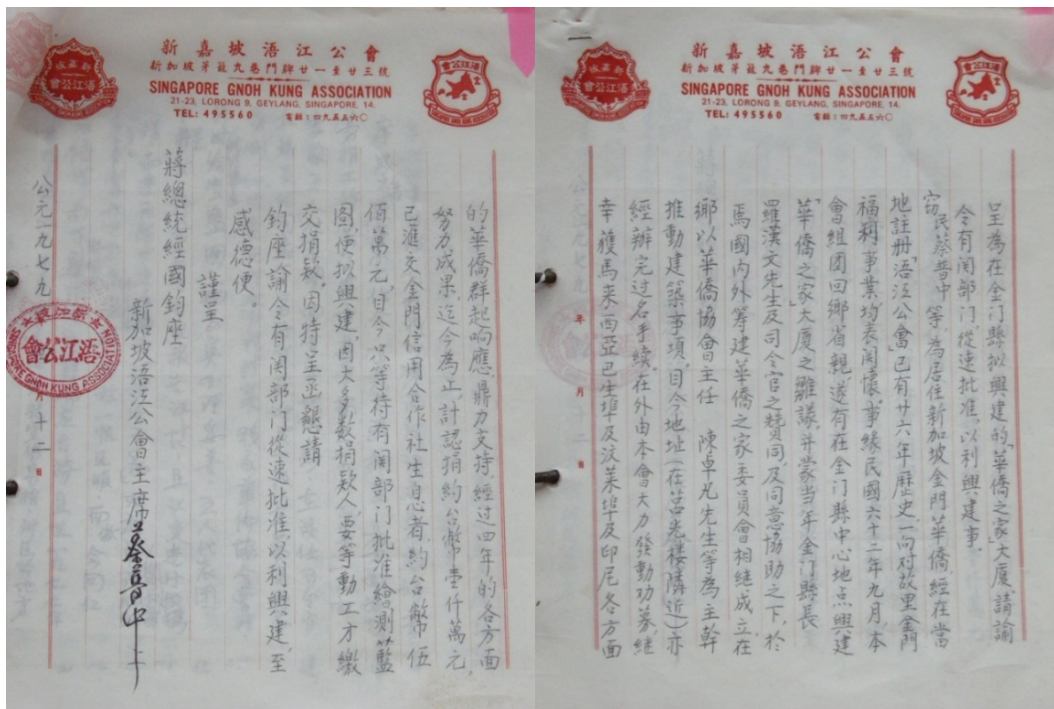 新嘉坡浯江公會
新加坡芽籠九巷門牌廿一至廿三號
SINGAPORE GNOH KUNG ASSOCIATION
21-23, LORONG 9, GEYLANG, SINGAPORE, 14.
TEL: 495560 電話:四九五五六〇
新嘉坡
浯江公會
浯江公會
SINGAPORE GNOH KUNG ASSOCIATION
呈為在金门縣拟興建的「華僑之家」大廈,請諭
令有関部门從速批准,以利興建事.
窃民蔡普中等,為居住新加坡金門華僑,經在當
地註册「浯江公會」已有廿六年歷史,一向对故里金門
福利事業均表関懷,事緣民國六十二年九月,本
會組团回鄉省親,遂有在金门縣中心地点興建
「華僑之家」大厦之雛議,并蒙当年金门縣長
羅漢文先生及司令官之贊同及同意協助之下,於
馬國内外筹建華僑之家委員會相継成立,在
鄉以華僑協會主任 陳卓凡先生等為主幹
推動建築事項,目今地址(在莒光楼隣近)亦
經辦完过名手續,在外由本會大力發動功募,継
幸獲馬来西亞巴生埠及汶萊埠及印尼各方面
年 月 日
新嘉坡浯江公會
新加坡芽籠九巷門牌廿一至廿三號
SINGAPORE GNOH KUNG ASSOCIATION
21-23, LORONG 9, GEYLANG, SINGAPORE, 14.
TEL: 495560 電話:四九五五六〇
新嘉坡
浯江公會
浯江公會
SINGAPORE GNOH KUNG ASSOCIATION
的華僑群起响應,鼎力支持,經过四年的各方面
努力成果,迄今為止,計認捐約台幣壹仟萬元,
已滙交金門信用合作社生息者,約台幣伍
佰萬元,目今只等待有関部门批准繪測藍
図,便拟興建,因大多数捐款人,要等動工才繳
交捐款,因特呈函懇請
鈞座諭令有関部门從速批准,以利興建,至
感德便。
謹呈
蔣總統經國鈞座
新加坡浯江公會主席 蔡普中
公元一九七九 月十二日
新嘉坡
浯江公會
SINGAPORE GNOH KUNG ASSOCIATION